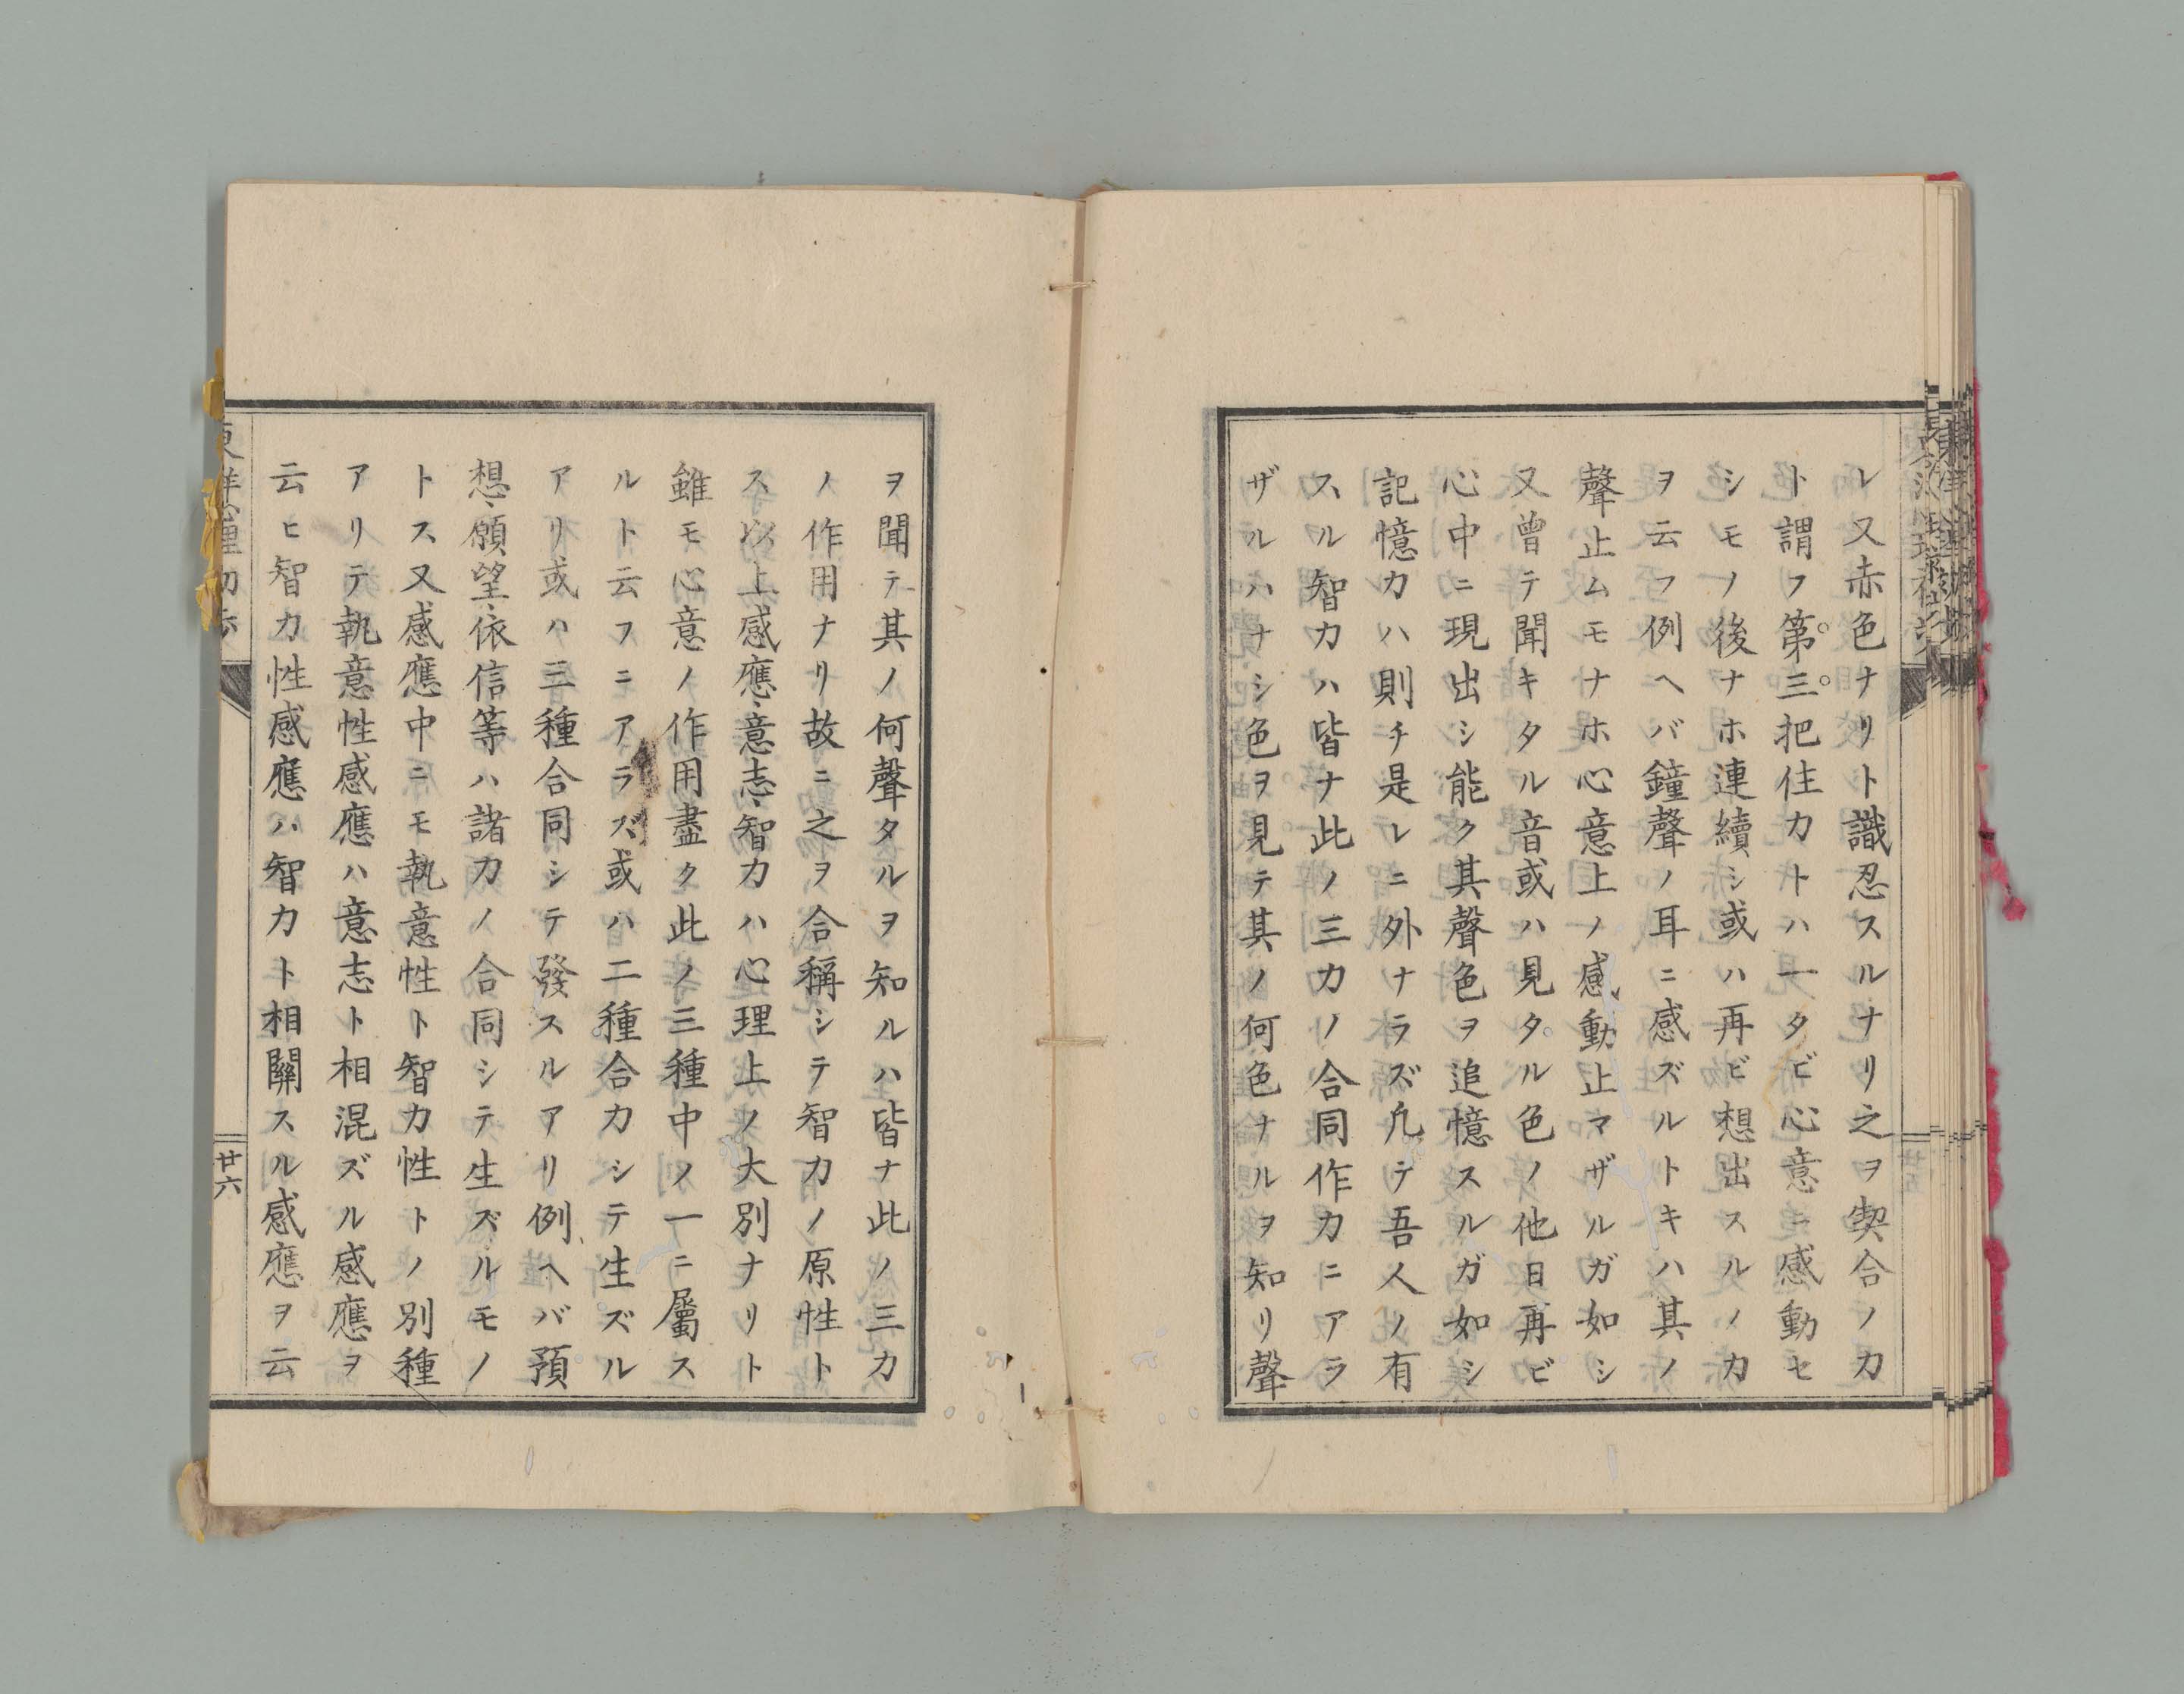 レ又赤色ナリト識忍スルナリ之ヲ契合ノ力
ト謂フ第三把住力トハ一タビ心意ニ感動セ
シモノ後ナホ連續シ或ハ再ビ想出スルノ力
ヲ云フ例ヘバ鐘聲ノ耳ニ感ズルトキハ其ノ
聲止ムモナホ心意上ノ感動止マザルガ如シ
又曾テ聞キタル音或ハ見タル色ノ他日再ビ
心中ニ現出シ能ク其聲色ヲ追憶スルガ如シ
記憶力ハ則チ是レニ外ナラズ凡テ吾人ノ有
スル智力ハ皆ナ此ノ三力ノ合同作力ニアラ
ザルハナシ色ヲ見テ其ノ何色ナルヲ知リ聲
ヲ聞テ其ノ何聲タルヲ知ルハ皆ナ此ノ三力
ノ作用ナリ故ニ之ヲ合稱シテ智力ノ原性ト
ス以上感應、意志、智力ハ心理上ノ大別ナリト
雖モ心意ノ作用盡ク此ノ三種中ノ一ニ屬ス
ルト云フニアラズ或ハ二種合力シテ生ズル
アリ或ハ三種合同シテ發スルアリ例ヘバ預
想、願望、依信等ハ諸力ノ合同シテ生ズルモノ
トス又感應中ニモ執意性ト智力性トノ別種
アリテ執意性感應ハ意志ト相混ズル感應ヲ
云ヒ智力性感應ハ智力ト相關スル感應ヲ云
廿六